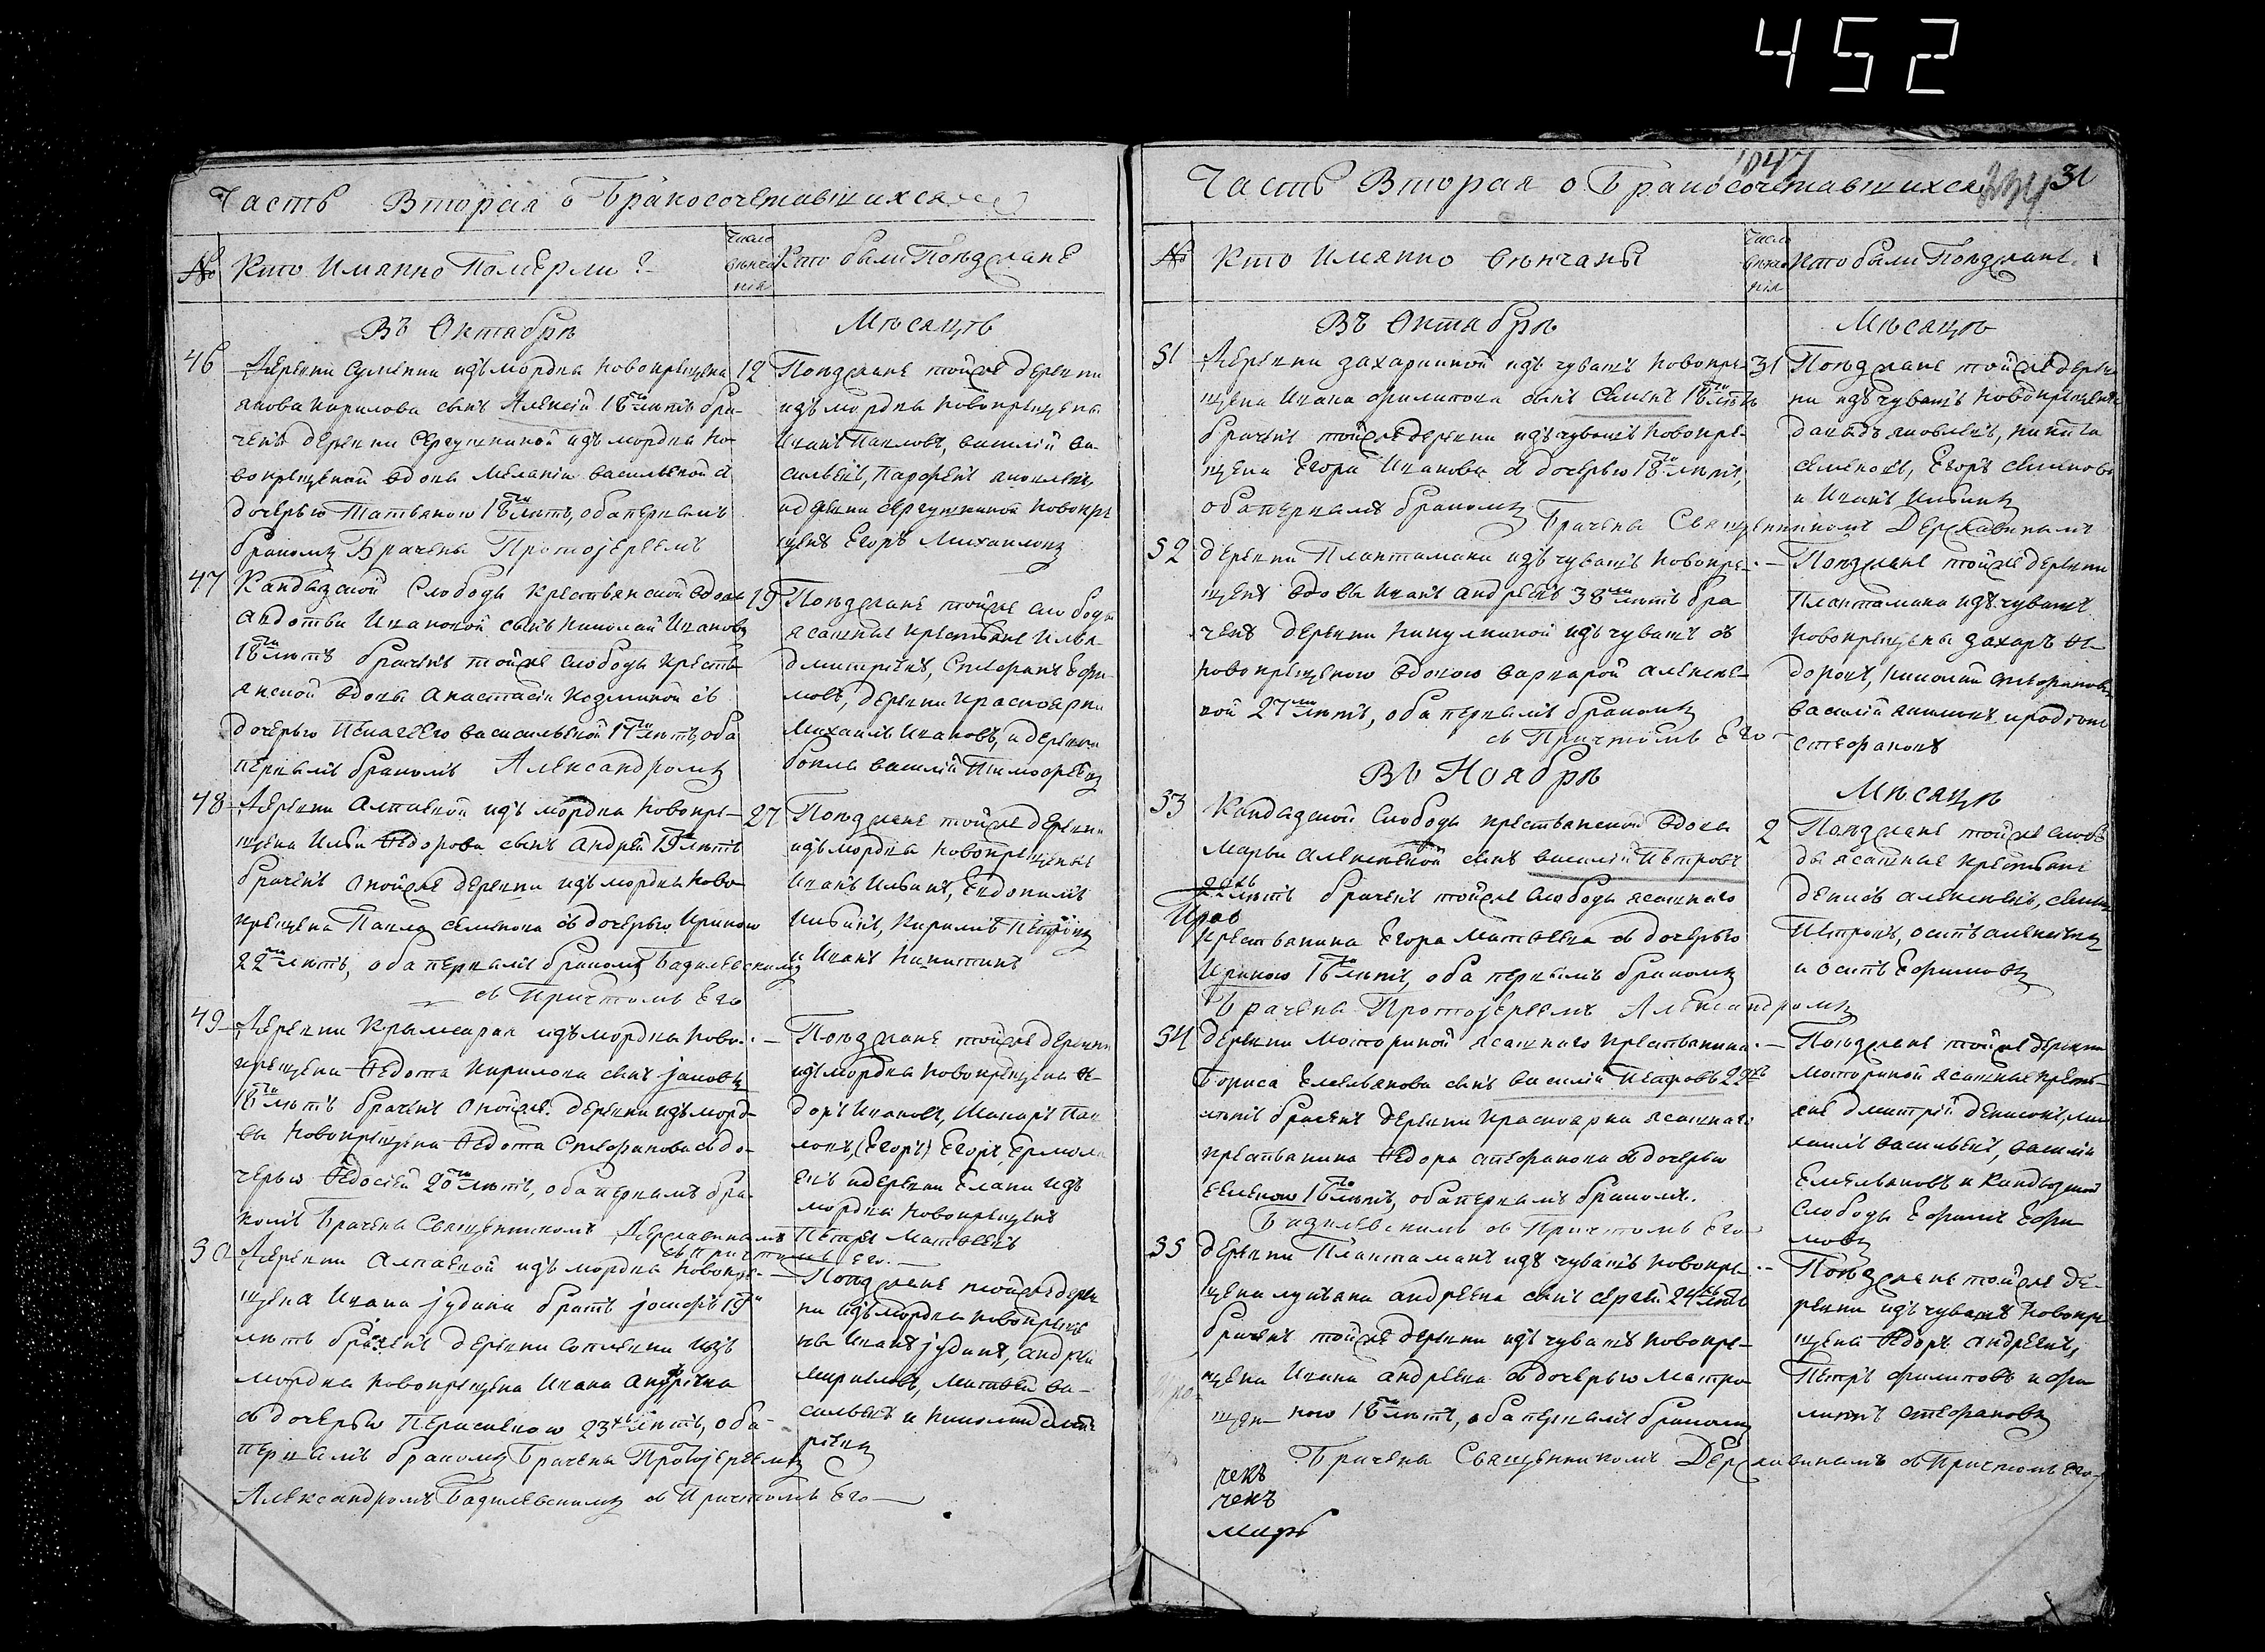 452
Часть Вторая о Бракосочетавшихся
№ Кто Имянно Померли? Число венчания Кто были Поезжане
Въ Октябрѣ Мѣсяцѣ
46 Деревни изъ мордвы новокрещена 12
якова кирилова сынъ Алексей 18ти летъ бра-
ченъ деревни Сергушкиной изъ мордвы но-
вокрещеной вдовы Меланiи васильевой съ
дочерью Татьяною 18ти летъ, оба первымъ
бракомъ Брачены Протоiереемъ
Поезжане тойже деревни
изъ мордвы новокрещены
Иванъ Павловъ, василiй ва-
сильевъ, Парфенъ яковлевъ,
идеревни сергушкиной новокре
щенъ Егоръ Михаиловъ
47 Кандызской Слободы крестьянской вдовы 19
Авдотьи Ивановой сынъ Николай Ивановъ
18ти летъ браченъ тойже слободы кресть-
янской вдовы Анастасiи козминой съ
дочерью васильевой 17ти летъ, оба
первымъ бракомъ Александромъ
Поезжане тойже слободы
ясашные крестьяне Илья
дмитрiевъ, Стефанъ Ефи-
мовъ, деревни красноярки
Михаилъ Ивановъ, и деревни
василiй Тимофеевъ
48 Деревни Алпаевой изъ мордвы новокре- 27
щена Ильи Ѳедорова сынъ Андрей 19ти летъ
браченъ стойже деревни изъ мордвы ново-
крещена Павла семенова съ дочерью Ириною
22ти летъ, оба первымъ бракомъ Базилевскимъ
съ Причтомъ Его
Поезжане тойже деревни
изъ мордвы новокрещены
Иванъ Ильинъ, Евдокимъ
Ильинъ, Кирилъ Петровъ
и Иванъ Никитинъ
49 Деревни Крымсарая изъ мордвы ново-
крещена Ѳедота Кирилова сынъ iаковъ
18ти летъ браченъ стойже деревни изъ морд-
вы новокрещена Ѳедота Стефанова съ до-
черью Ѳедосiей 20ти летъ, оба первымъ бра-
комъ Брачены Священникомъ Державинымъ
съ Причтомъ Его.
Поезжане тойже деревни
изъ мордвы новокрещена Ѳе-
доръ Ивановъ, Макаръ Пав
ловъ, (Егоръ) Егоръ, Ермола
евъ идеревни Елани изъ
мордвы новокрещенъ
Петръ Матвеевъ
50 Деревни Алпаевой изъ мордвы новокре-
щена Ивана iудина братъ iосифъ 19ти
летъ браченъ деревни изъ
мордвы новокрещена Ивана Андреева
съ дочерью 23хъ летъ, оба
первымъ бракомъ Брачены Протоiереемъ
Александромъ Базилевскимъ съ Причтомъ Его
Поезжане тойже дерев
ни изъ мордвы новокреще
ны Иванъ iудинъ, андрей
кириловъ, Матвей ва-
сильевъ и Николай дмит
рiевъ
1047
31
Часть Вторая о Бракосочетавшихся
№ Кто Имянно венчаны Число венчанiя Кто были Поезжане
Въ Октябрѣ Мѣсяцѣ
51 Деревни захаркиной изъ чувашъ новокре- 31
щена Ивана филипова сынъ Семенъ 18ти летъ
браченъ тойже деревни изъ чувашъ новокре-
щена Егора Иванова съ дочерью 18ти летъ,
оба первымъ бракомъ
Брачены Священникомъ Державинымъ
Поезжане тойже дерев
ни изъ чувашъ новокрещены
давыдъ яковлевъ, никита
семеновъ, Егоръ семеновъ
и Иванъ Ильинъ
52 деревни Плантамака изъ чувашъ новокре-
щенъ вдовы Иванъ Андреевъ 38ми летъ бра
ченъ деревни Никулкиной изъ чувашъ съ
новокрещеною вдовою варварой алексее-
вой 27ми летъ, оба первымъ бракомъ
съ Причтомъ Его
Поезжане тойже деревни
Плантамака изъ чувашъ
новокрещены захаръ Ѳе-
доровъ, николай стефановъ
василiй иродiонъ
стефановъ
Въ Ноябрѣ Мѣсяцѣ
53 Кандызской Слободы крестьянской вдовы 2
Марьи алексеевой сынъ василiй Петровъ
летъ браченъ тойже слободы ясашнаго
крестьянина Егора Матвеева съ дочерью
Ириною 18ти летъ, оба первымъ бракомъ
Брачены Протоiереемъ Александромъ
Поезжане тойже слобо
ды ясашные крестьяне
денисъ алексеевъ, семенъ
Петровъ, осипъ алексеевъ
и осипъ Ефимовъ
54 деревни Моториной ясашнаго крестьянина
Бориса Емельянова сынъ василiй Петровъ 22хъ
летъ браченъ деревни красноярки ясашнаго
крестьянина Ѳедора стефанова съ дочерью
Еленою 18ти летъ, оба первымъ бракомъ.
Базилевскимъ съ Причтомъ Его
Поезжане тойже деревни
моториной ясашные кресть-
яне дмитрiй денисовъ, ми
хаилъ васильевъ, василiй
Емельяновъ и Кандызской
слободы Ефимъ Ефи
мовъ
55 деревни Плантамакъ изъ чувашъ новокре-
щена лукьяна андреева сынъ сергей 24хъ летъ
браченъ тойже деревни изъ чувашъ новокре-
щена Ивана андреева съ дочерью Матро
ною 18ти летъ, оба первымъ бракомъ
Брачены Священникомъ Державинымъ съ Причтомъ Его
Поезжане тойже де-
ревни изъ чувашъ новокре
щены Ѳедоръ андреевъ,
Петръ филиповъ и фи
липъ стефановъ
щен
ченъ
ченъ
миръ